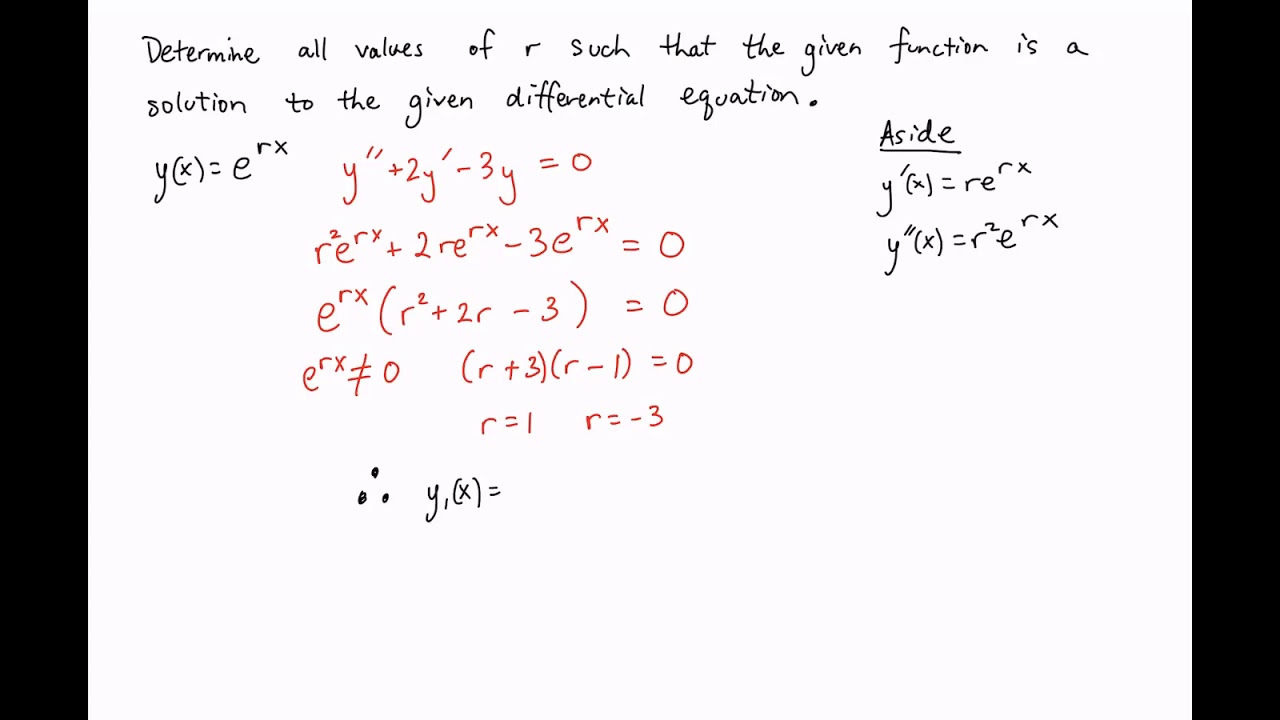 Determine all values of r such that the given function is a
solution to the given differential equation.
Aside
y(x) = e^{rx} y'' + 2y' - 3y = 0
y'(x) = re^{rx}
r²e^{rx} + 2re^{rx} - 3e^{rx} = 0
y''(x) = r²e^{rx}
e^{rx} (r² + 2r - 3) = 0
e^{rx} ≠ 0 (r + 3)(r - 1) = 0
r = 1 r = -3
∴ y₁(x) =